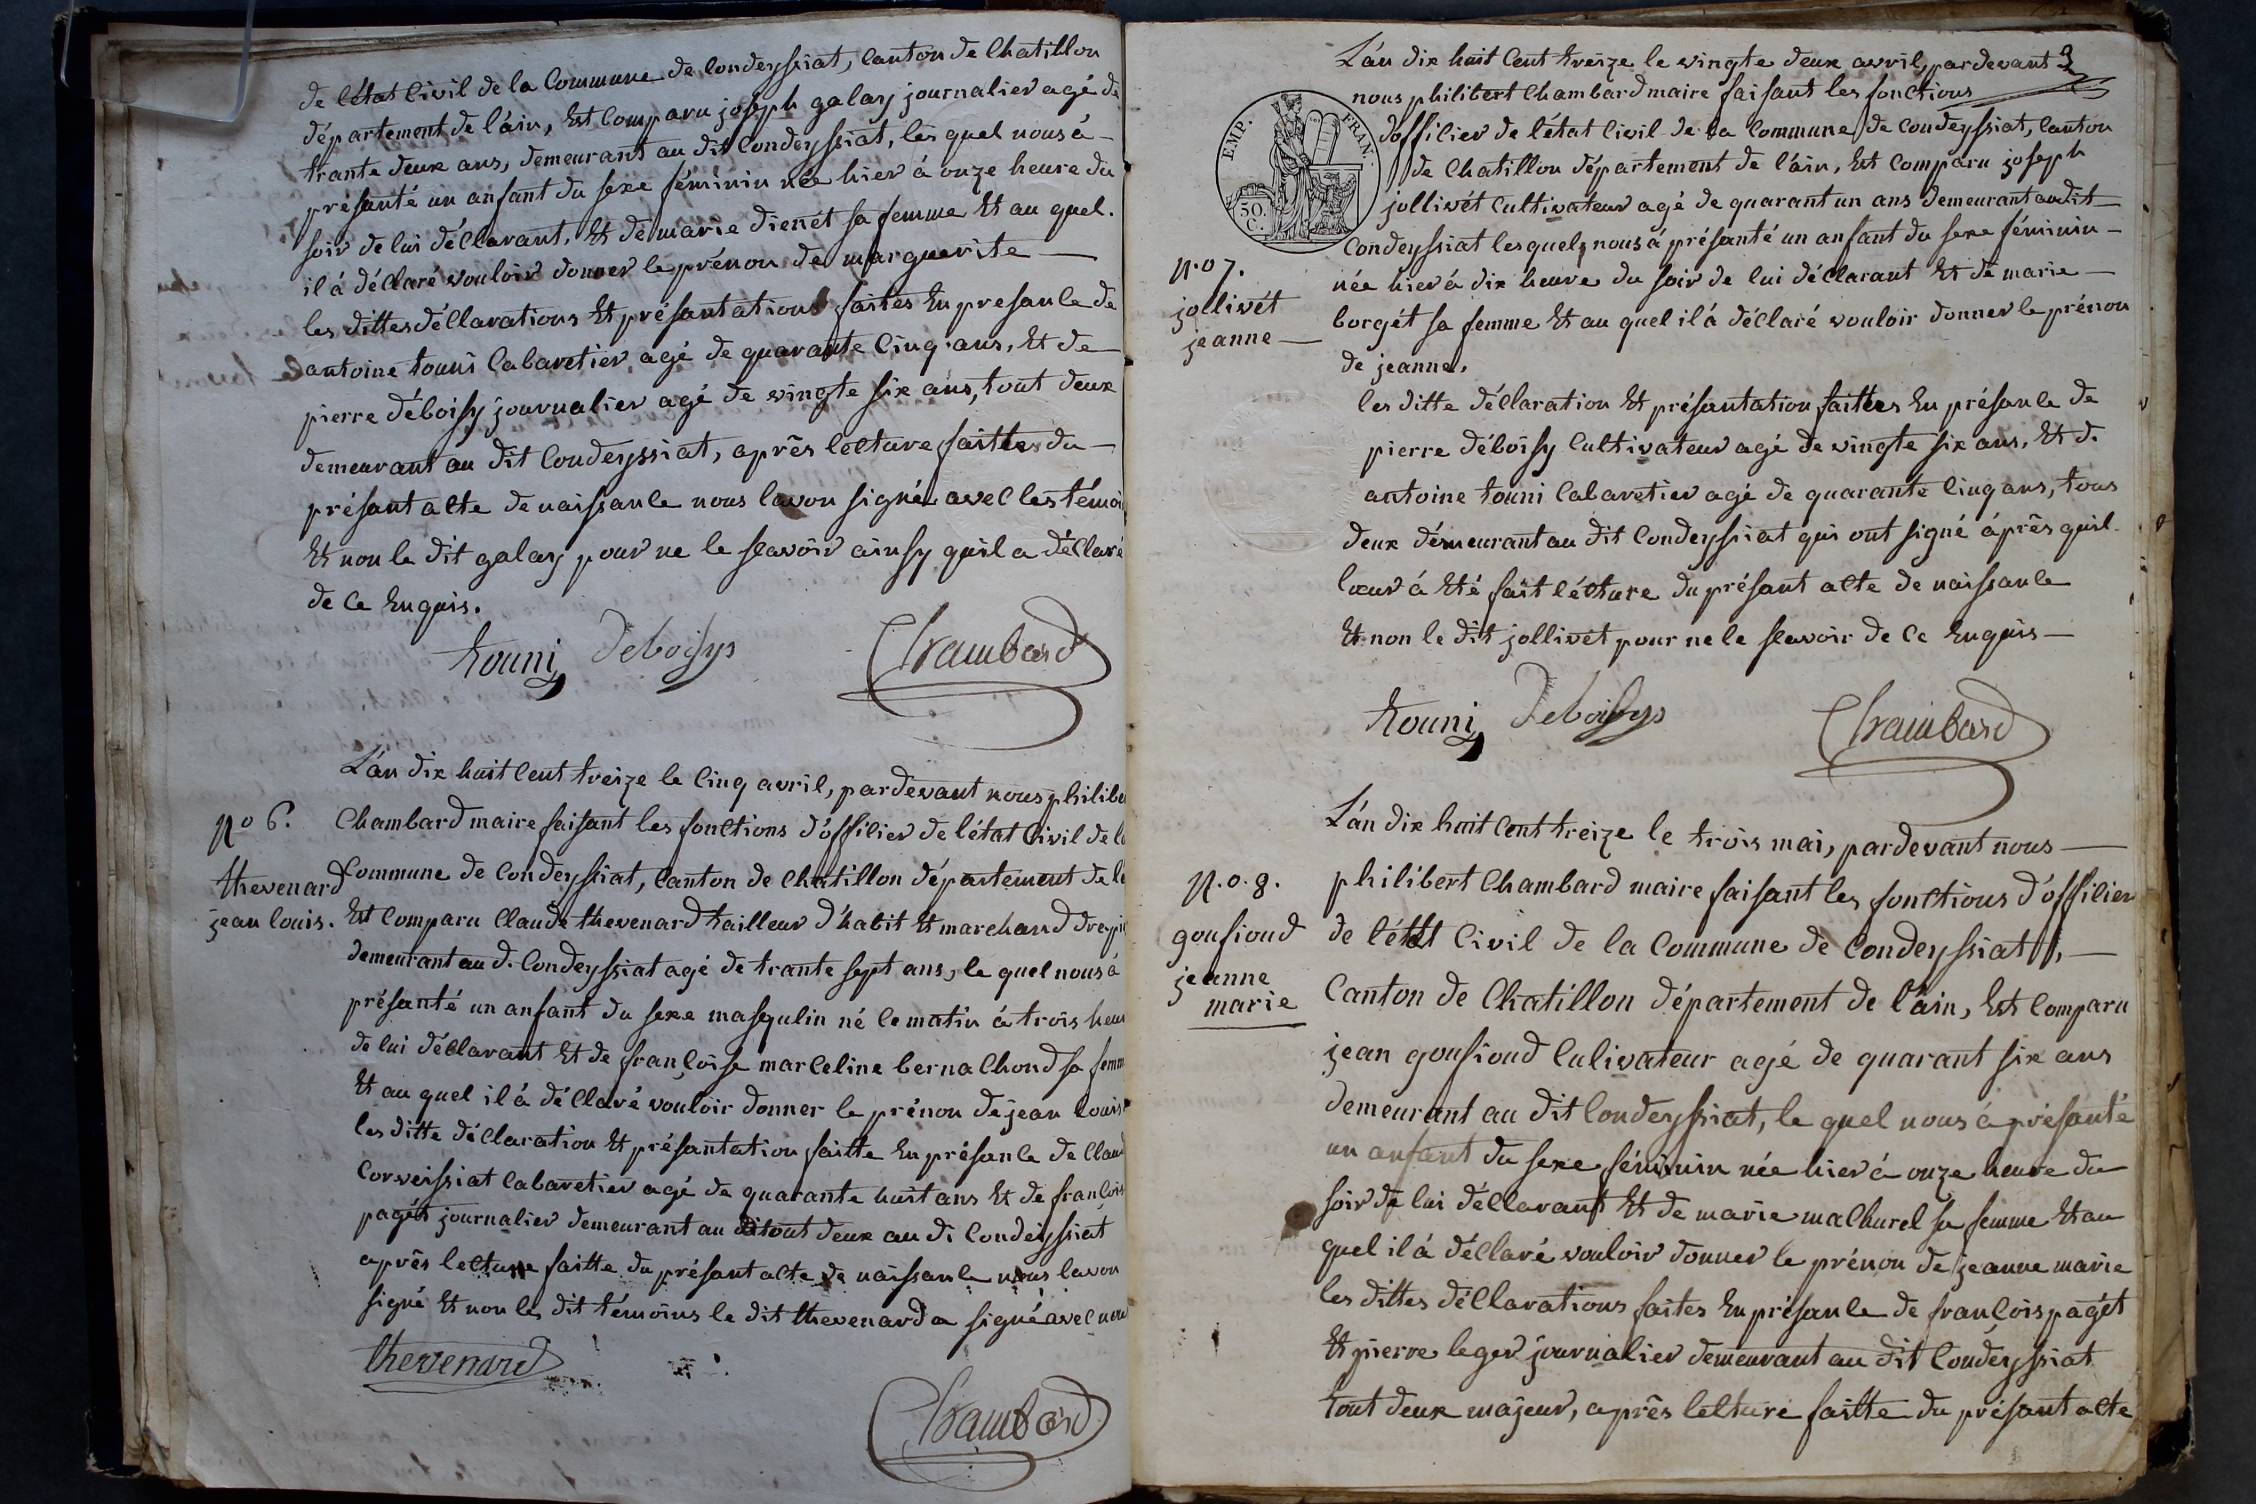 de létat Civil de la Commune de Condeyssiat, Canton de Chatillon
département de láin, Est Comparu joseph galay journalier agé de
trante deux ans, demeurant au dit Condeyssiat, les quel nous à
présanté un anfant du sexe féminin née hier à onze heure du
soir de lui déclarant, Et de marie dienét sa femme Et au quel
il à déclaré vouloir donner le prénon de marguerite
les dittes déclarations Et présantations faites En presance de
antoine touni Cabaretier agé de quarante Cinq ans, Et de
pierre déboisy journalier agé de vingte six ans, tout deux
demeurant au dit Condeyssiat, après lecture faitte du
présant acte de naissance nous lavon signé avec les témoi
Et non le dit galay pour ne le scavoir ainsy quil a déclaré
de Ce Enquis.
touni Deboisys Chambard
L'an dix huit Cent treize le Cinq avril, pardevant nous philibe
N.o 6. Chambard maire faisant les fonctions d'officier de l'état Civil de la
thevenard Commune de Condeyssiat, Canton de Chatillon département de l
jean louis. Est Comparu Claude thevenard tailleur d'habit Et marchand
demeurant au d. Condeyssiat agé de trante sept ans, le quel nous à
présanté un anfant du sexe masqulin né Ce matin à trois heur
de lui déclarant Et de françoise marceline bernachond sa femm
Et au quel il à déclaré vouloir donner le prénon de jean louis
les ditte déclaration Et présantation faitte En présance de Claud
Corveissiat Cabaretier agé de quarante huit ans Et de françois
pagét journalier demeurant au tout deux au di Condeyssiat
après lecture faitte du présant acte de naissance nous lavon
signé Et non les dit témoins le dit thevenard a signé avec nou
thevenard
Chambard
L'an dix huit Cent treize le vingte deux avril, pardevant 3
nous philibert Chambard maire faisant les fonctions
EMP. FRAN.
50. C.
d'officier de l'état Civil de la Commune de Condeyssiat, Canton
de Chatillon département de l'ain, Est Comparu joseph
jollivét Cultivateur agé de quarant un ans demeurant audit
Condeyssiat lesquel nous à présanté un anfant du sexe féminin
N.o 7. née hier à dix heure du soir de lui déclarant Et de marie
jollivét borgét sa femme Et au quel il à déclaré vouloir donner le prénon
jeanne de jeanne.
les ditte déclaration Et présantation faittes En présance de
pierre déboisy Cultivateur agé de vingte six ans, Et d.
antoine touni Cabaretier agé de quarante Cinq ans, tous
deux démeurant au dit Condeyssiat qui ont signé áprês quil
à Eté fait lécture du présant acte de naissance
Et non le dit jollivét pour ne le scavoir de Ce Enquis
touni Deboisys
Chambard
L'an dix huit Cent treize le trois mai, pardevant nous
N.o. 8. philibert Chambard maire faisant les fonctions d'officier
gousioud de l'état Civil de la Commune de Condeyssiat,
jeanne marie Canton de Chatillon département de l'ain, Est Comparu
jean gousioud Culivateur agé de quarant six ans
demeurant au dit Condeyssiat, le quel nous à présanté
un anfant du sexe féminin née hier à onze heure du
soir de lui déclarant Et de marie machurel sa femme Et au
quel il à déclaré vouloir donner le prénon de jeanne marie
les dittes déclarations faites En présance de françois pagét
Et pierre leger journalier demeurant au dit Condeyssiat
tout deux majeur, après lecture faitte du présant acte